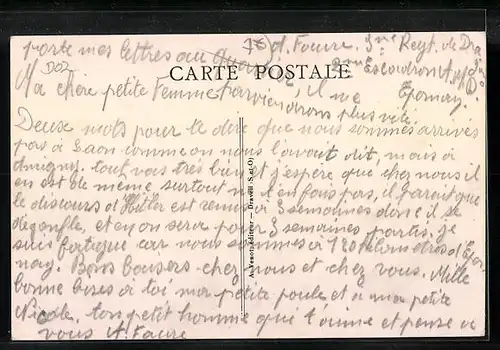 porte mes lettres au
d. Faure. 3me Regt. de Dra
2me Escadron
CARTE POSTALE
Ma chère petite Femme parviendrons plus vite. Epernay.
Deux mots pour te dire que nous sommes arrivés
pas à Laon comme on nous l'avait dit, mais à
tout vas très bien et j'espère que chez nous il
en est de même, surtout ne t'en fais pas, il parait que
le discours d'Hitler est remis à 3 semaines donc il se
degonfle, et on sera pour 3 semaines partis. je
suis fatigué car nous sommes à 120 kilomètres d'Eper
nay. Bons baisers chez nous et chez vous. Mille
bonne bises à toi ma petite poule et a ma petite
Nicole. ton petit homme qui t'aime et pense a
vous A. Faure